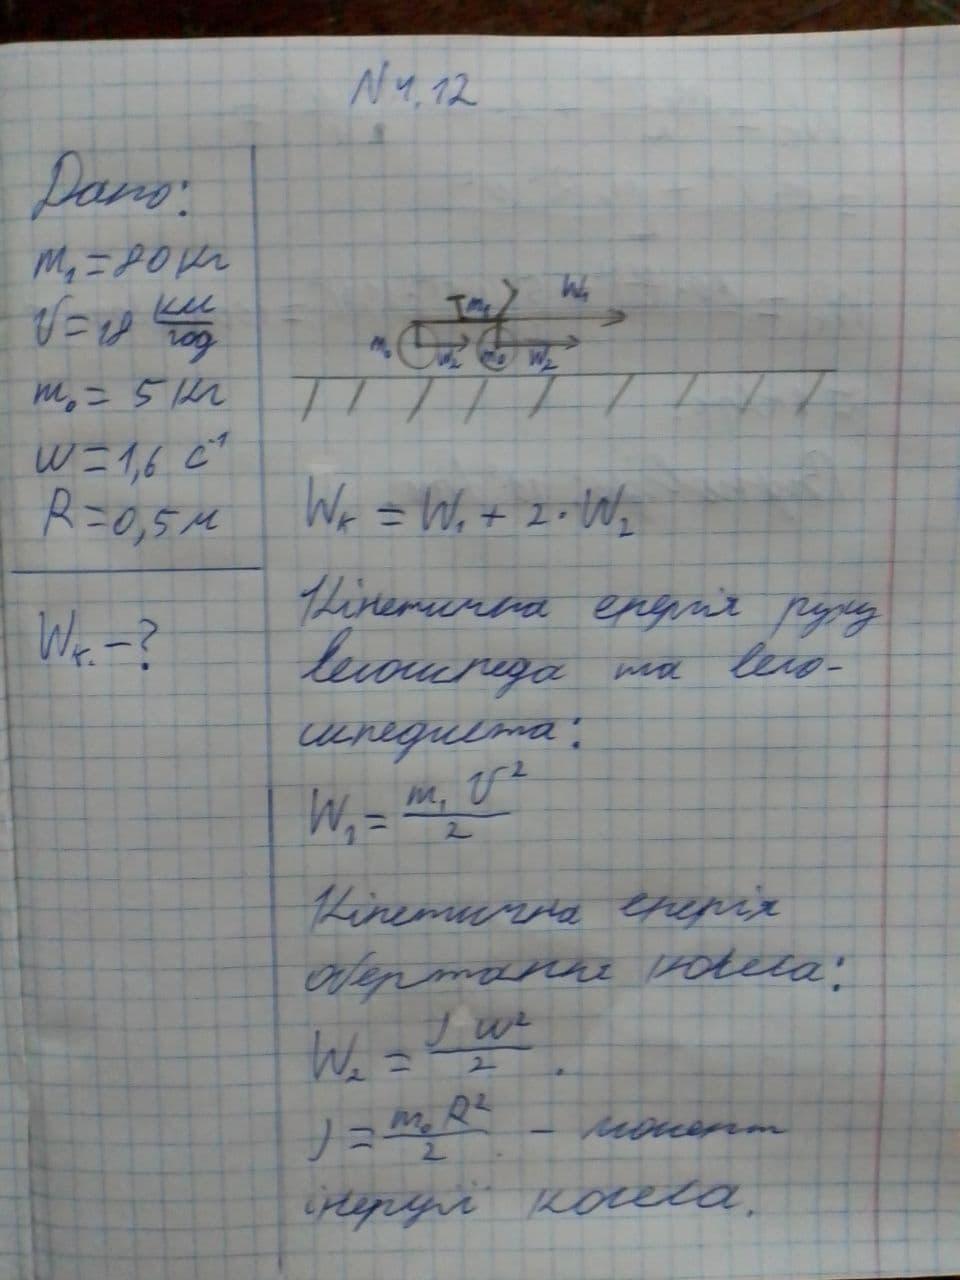 N 4.12
Дано:
m₁ = 80 кг
V = 18 км/год
m₀ = 5 кг
w = 1,6 с⁻¹
R = 0,5 м
Wк. - ?
m₁ W₁
m₀ W₂ m₀ W₂
Wк = W₁ + 2 · W₂
Кінетична енергія руху
велосипеда та вело-
сипедиста:
W₁ = m₁ V² / 2
Кінетична енергія
обертання колеса:
W₂ = J w² / 2 .
J = m₀ R² / 2 - момент
інерції колеса.